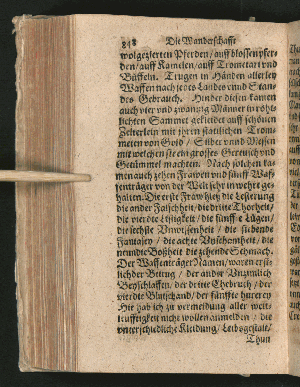 848 Die Wanderschafft
wolgezierten Pferden/ auff blossen pfer-
den/ auff Kamelen/ auff Trometari vnd
Büffeln. Trugen in Händen allerley
Waffen nach jedes Landes vnnd Stan-
des Gebrauch. Hinder diesen kamen
auch vier vnd zwantzig Männer in röht-
lichten Sammet gekleidet auff schönen
Zelterlein mit jhren stattlichen Trom-
meten von Gold/ Silber vnnd Messen
mit welchen sie ein grosses Gereusch vnd
Getümmel machten. Nach solchen ka-
men auch zehen Frawen vnnd fünff Waf-
fenträger von der Welt sehr in wehrt ge-
halten. Die erste Fraw hieß die Lesterung
die ander Falschheit/ die dritte Thorheit/
die vierdte Listigkeit/ die fünffte Lügen/
die sechste Vnwissenheit/ die siebende
Fantasey/ die achte Vnschamheit/ die
neundte Boßheit die zehende Schmach.
Der Waffenträger Namen/ waren erst-
lich der Betrug/ der ander Vnzimlich
Beyschlaffen/ der dritte Ehebruch/ der
vierdte Blutschand/ der fünffte hurerey
Hie hab ich zu vermeidung aller weit-
leufftigkeit nicht wollen anmelden/ die
vnterschiedliche Kleidung/ Leibsgestalt/
Thun